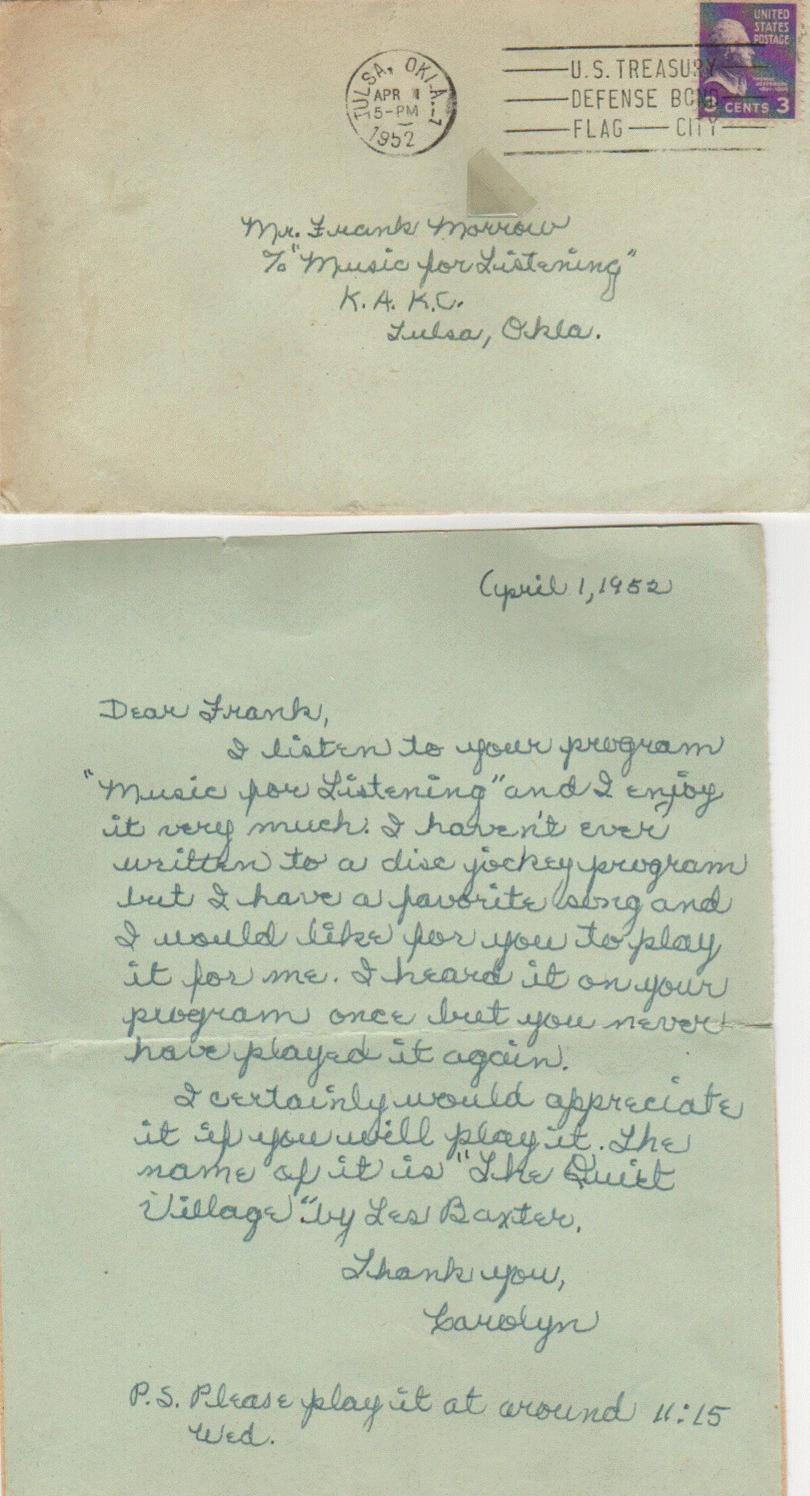 UNITED
STATES
POSTAGE
TULSA, OKLA.-1
APR 1
5-PM
1952
U.S. TREASURY
DEFENSE BOND
FLAG CITY
3 CENTS 3
Mr. Frank Morrow
℅ "Music for Listening"
K.A.K.C.
Tulsa, Okla.
April 1, 1952
Dear Frank,
I listen to your program
"Music for Listening" and I enjoy
it very much. I haven't ever
written to a disc jockey program
but I have a favorite song and
I would like for you to play
it for me. I heard it on your
program once but you never
have played it again.
I certainly would appreciate
it if you will play it. The
name of it is "The Quiet
Village" by Les Baxter.
Thank you,
Carolyn
P.S. Please play it at around 11:15
Wed.